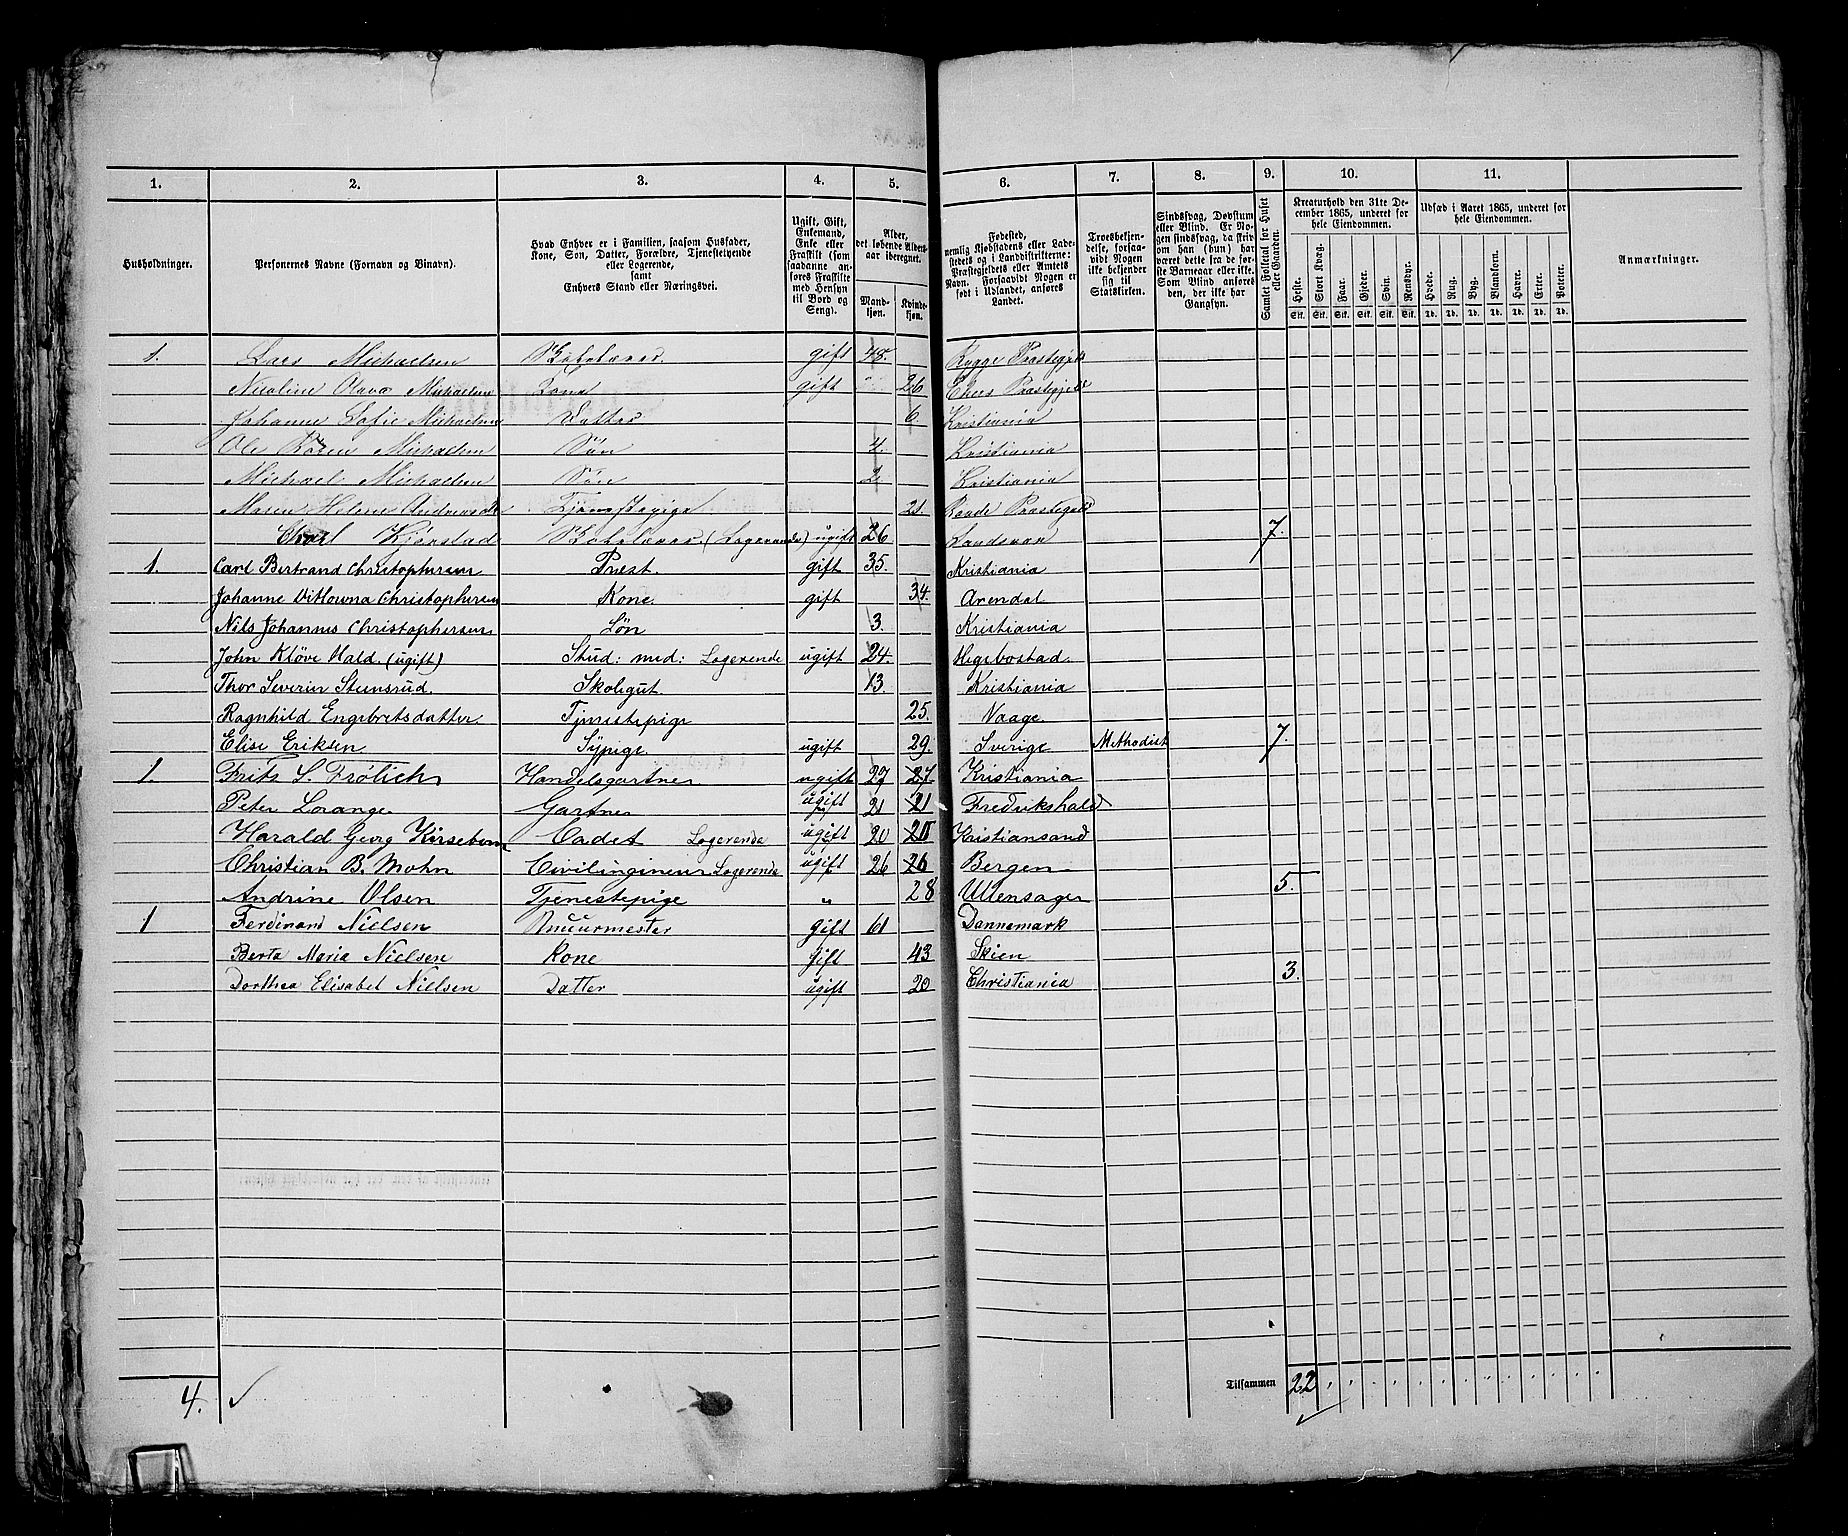 1. 2. 3. 4. 5. 6. 7. 8. 9. 10. 11.
Husholdninger.
Personernes Navne (Fornavn og Binavn).
Hvad Enhver er i Familien, saasom Husfader,
Kone, Søn, Datter, Forældre, Tjenestetyende
eller Logerende,
samt
Enhvers Stand eller Næringsvei.
Ugift, Gift,
Enkemand,
Enke eller
Fraskilt (som
saadanne an-
føres Fraskilte
med Hensyn
til Bord og
Seng).
Alder,
det løbende Alders-
aar iberegnet.
Mand-
kjøn.
Kvinde-
kjøn.
Fødested,
nemlig Kjøbstadens eller Lade-
stedets og i Landdistrikterne:
Præstegjeldets eller Amtets
Navn. Forsaavidt Nogen er
født i Udlandet, anføres
Landet.
Troesbekjen-
delse, forsaa-
vidt Nogen
ikke bekjender
sig til
Statskirken.
Sindssvag, Døvstum
eller Blind. Er No-
gen sindssvag, da skriv
om han (hun) har
været dette fra de før-
ste Barneaar eller ikke.
Som Blind anføres
den, der ikke har
Gangsyn.
Samlet Folketal for Huset
eller Gaarden.
Kreaturhold den 31te De-
cember 1865, underet for
hele Eiendommen.
Heste. Stort Kvæg. Faar. Gjeder. Svin. Rensdyr.
Stk. Stk. Stk. Stk. Stk. Stk.
Udsæd i Aaret 1865, underet for
hele Eiendommen.
Hvede. Rug. Byg. Blandkorn. Havre. Erter. Poteter.
Td. Td. Td. Td. Td. Td. Td.
Anmærkninger.
1. Lars Michaelsen gift 48. Rygge Præstegjeld
Nicoline Olava Michaelsen Kone gift 26 Præstegjeld
Johanne Sofie Michaelsen Datter 6. Kristiania
Ole Michaelsen Søn 4. Kristiania
Michael Michaelsen Søn 2. Kristiania
Maren Helene Tjenestepige 21. Raade Præstegjeld
Kjørstad (Logerende) ugift 26 7.
1. Carl Bertrand Christophersen Præst. gift 35. Kristiania
Johanne Christophersen Kone. gift 34. Arendal
Nils Johannes Christophersen Søn 3. Kristiania
John Kløve Hald (ugift) Stud: med: Logerende ugift 24. Hegebostad.
Thor Severin Stensrud. Skolegut. 13. Kristiania
Ragnhild Engebretsdatter. Tjenestepige 25. Vaage.
Elise Eriksen Sypige. ugift 29. Sverige Methodist 7.
1. Frits S. Frølich Handelsgartner ugift 27 27. Kristiania
Peter Lorange Gartner ugift 21 21 Fredrikshald
Harald Georg Kirsebom Cadet Logerende ugift 20 20 Kristiansand
Christian B. Mohn Civilingineur Logerende ugift 26 26 Bergen
Andrine Olsen Tjenestepige " 28 Ullensager 5.
1 Ferdinand Nielsen Muurmester gift 61 Dannemark
Berta Maria Nielsen Kone gift 43 Skien
Dorthea Elisabet Nielsen Datter ugift 20 Christiania 3.
4. ✓
Tilsammen 22